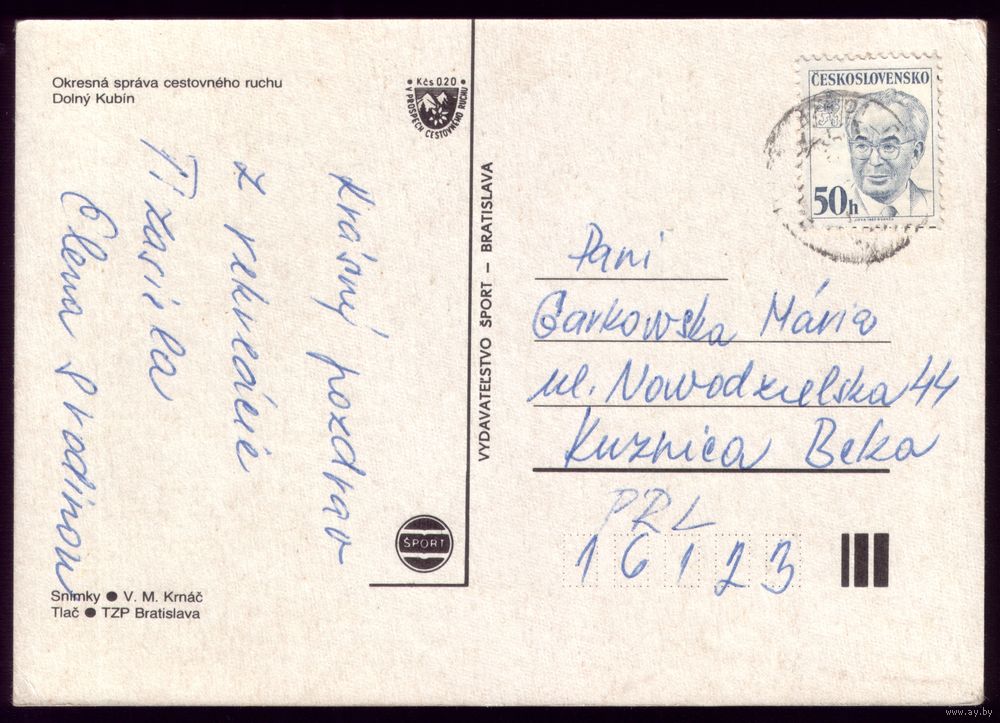 Okresná správa cestovného ruchu
Dolný Kubín
Kčs 020
V PROSPECH CESTOVNÉHO RUCHU
Krásny pozdrav
z rekreácie
Ti zasiela
Elena s rodinou
ŠPORT
Snímky ● V. M. Krnáč
Tlač ● TZP Bratislava
VYDAVATEĽSTVO ŠPORT – BRATISLAVA
ČESKOSLOVENSKO
50h
Pani
Garkowska Mária
ul. Nowodzielska 44
Kuznica Beka
PRL
16123
www.ay.by